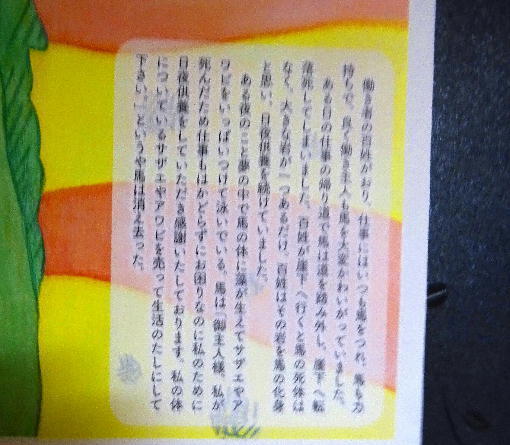 働き者の百姓がおり、仕事にはいつも馬をつれ、馬も力
持ちで、良く働き主人も馬を大変かわいがっていました。
ある日の仕事の帰り道で馬は道を踏み外し、崖下へ転
落死してしまいました。百姓が崖下へ行くと馬の死体は
なく、大きな岩が一つあるだけ。百姓はその岩を馬の化身
と思い、日夜供養を続けていました。
ある夜のこと夢の中で馬の体に藻が生えてサザエやア
ワビをいっぱいつけて泳いでいる。馬は「御主人様、私が
死んだため仕事もはかどらずにお困りなのに私のために
日夜供養をしていただき感謝いたしております。私の体
についているサザエやアワビを売って生活のたしにして
下さい。」というや馬は消え去った。